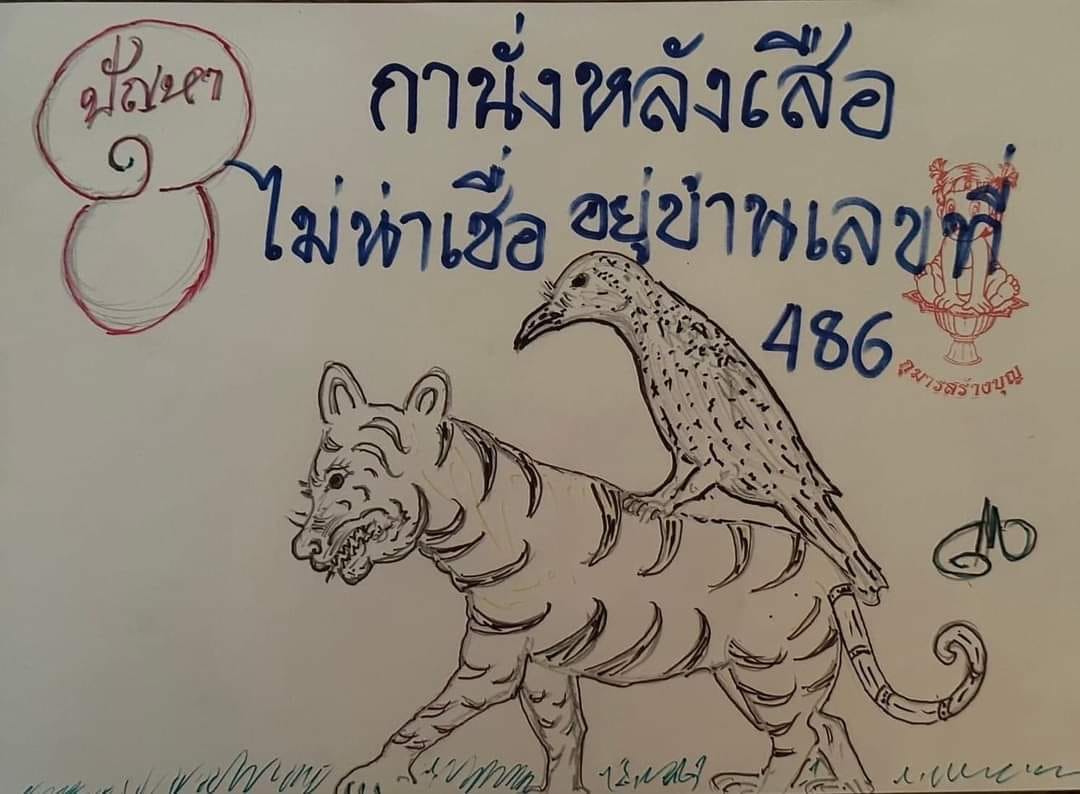 ปัญหา
๑
กานั่งหลังเสือ
ไม่น่าเชื่อ อยู่บ้านเลขที่
486
กุมารสร้างบุญ